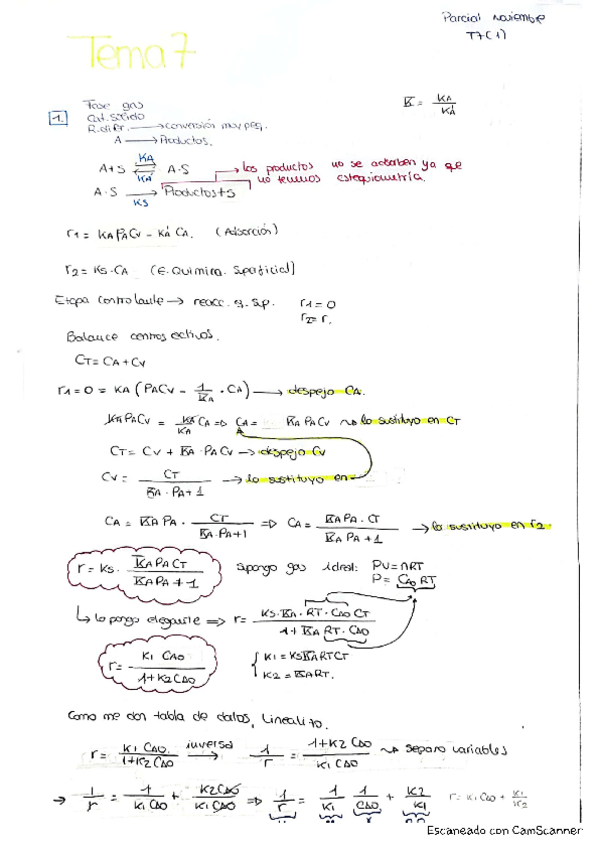 Parcial noviembre
T7(1)
Tema 7
1.
Fase gas
Cat. sólido
R. difer. → conversión muy peq.
A → Productos.
K̅ = KA / KA'
A+S ⇌ A·S
KA
KA'
A·S → Productos+S
KS
→ los productos no se adsorben ya que
no tenemos estequiometría.
r1 = KA PA CV - KA' CA. (Adsorción)
r2 = KS·CA (E. Química. Superficial)
Etapa controlante → reacc. q. sp. r1 = 0
r2 = r.
Balance centros activos.
CT = CA + CV
r1 = 0 = KA (PACV - 1/K̅A · CA) → despejo CA.
KA PACV = KA/K̅A CA ⇒ CA = K̅A PACV ⤳ lo sustituyo en CT
CT = CV + K̅A · PACV → despejo CV
CV = CT / K̅A · PA + 1 → lo sustituyo en
CA = K̅A PA · CT / K̅A·PA+1 ⇒ CA = K̅A PA · CT / K̅A PA + 1 → lo sustituyo en r2.
r = KS · K̅A PA CT / K̅A PA + 1 supongo gas ideal: PV = nRT
P = CA0 RT
↳ lo pongo elegante ⇒ r = KS · K̅A · RT · CA0 CT / 1 + K̅A RT · CA0
r = K1 CA0 / 1 + K2 CA0 { K1 = KS K̅A RT CT
K2 = K̅A RT.
Como me dan tabla de datos, linealizo.
r = K1 CA0 / 1+K2 CA0 inversa → 1/r = 1+K2 CA0 / K1 CA0 ⤳ separo variables
→ 1/r = 1 / K1 CA0 + K2 CA0 / K1 CA0 ⇒ 1/r = 1/K1 1/CA0 + K2/K1 r = K1 CA0 + K1/K2
Escaneado con CamScanner